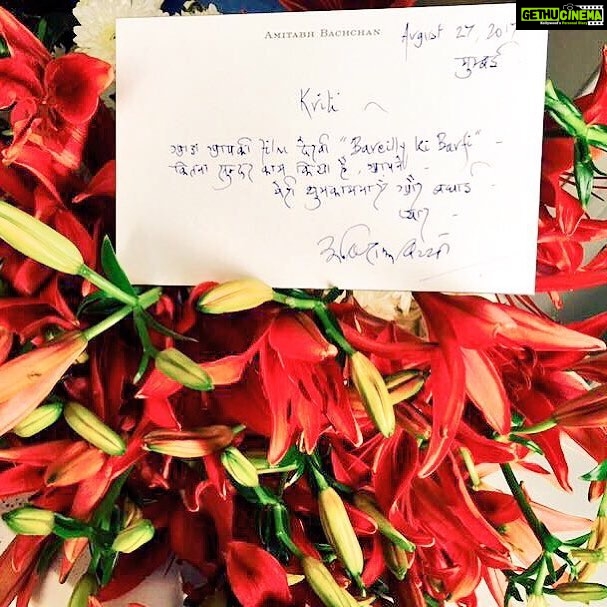 GETHUCINEMA
Bollywood's Personal Diary
AMITABH BACHCHAN
August 27, 2017
मुम्बई
Kriti
आज आपकी film देखी "Bareilly Ki Barfi" -
कितना सुन्दर काम किया है, आपने -
मेरी शुभकामनाएँ और बधाई